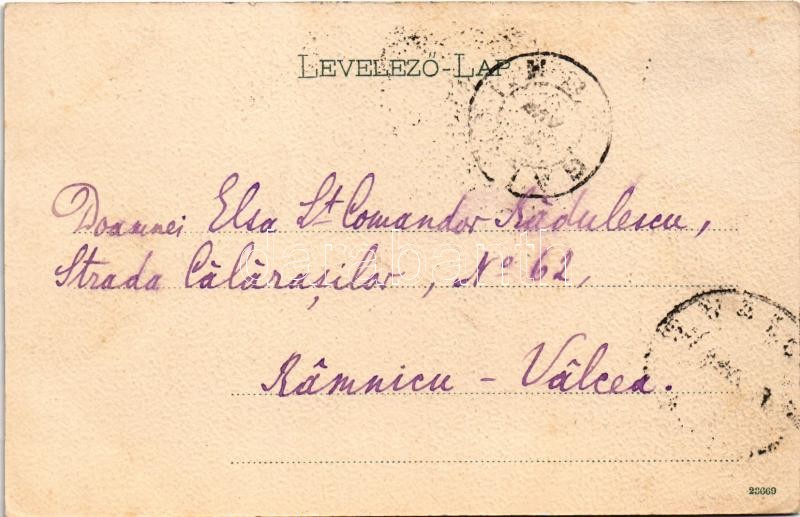 LEVELEZŐ-LAP
Doamnei Elsa Lt Comandor Rădulescu,
Strada Călărașilor, No 62,
Râmnicu - Vâlcea.
23669